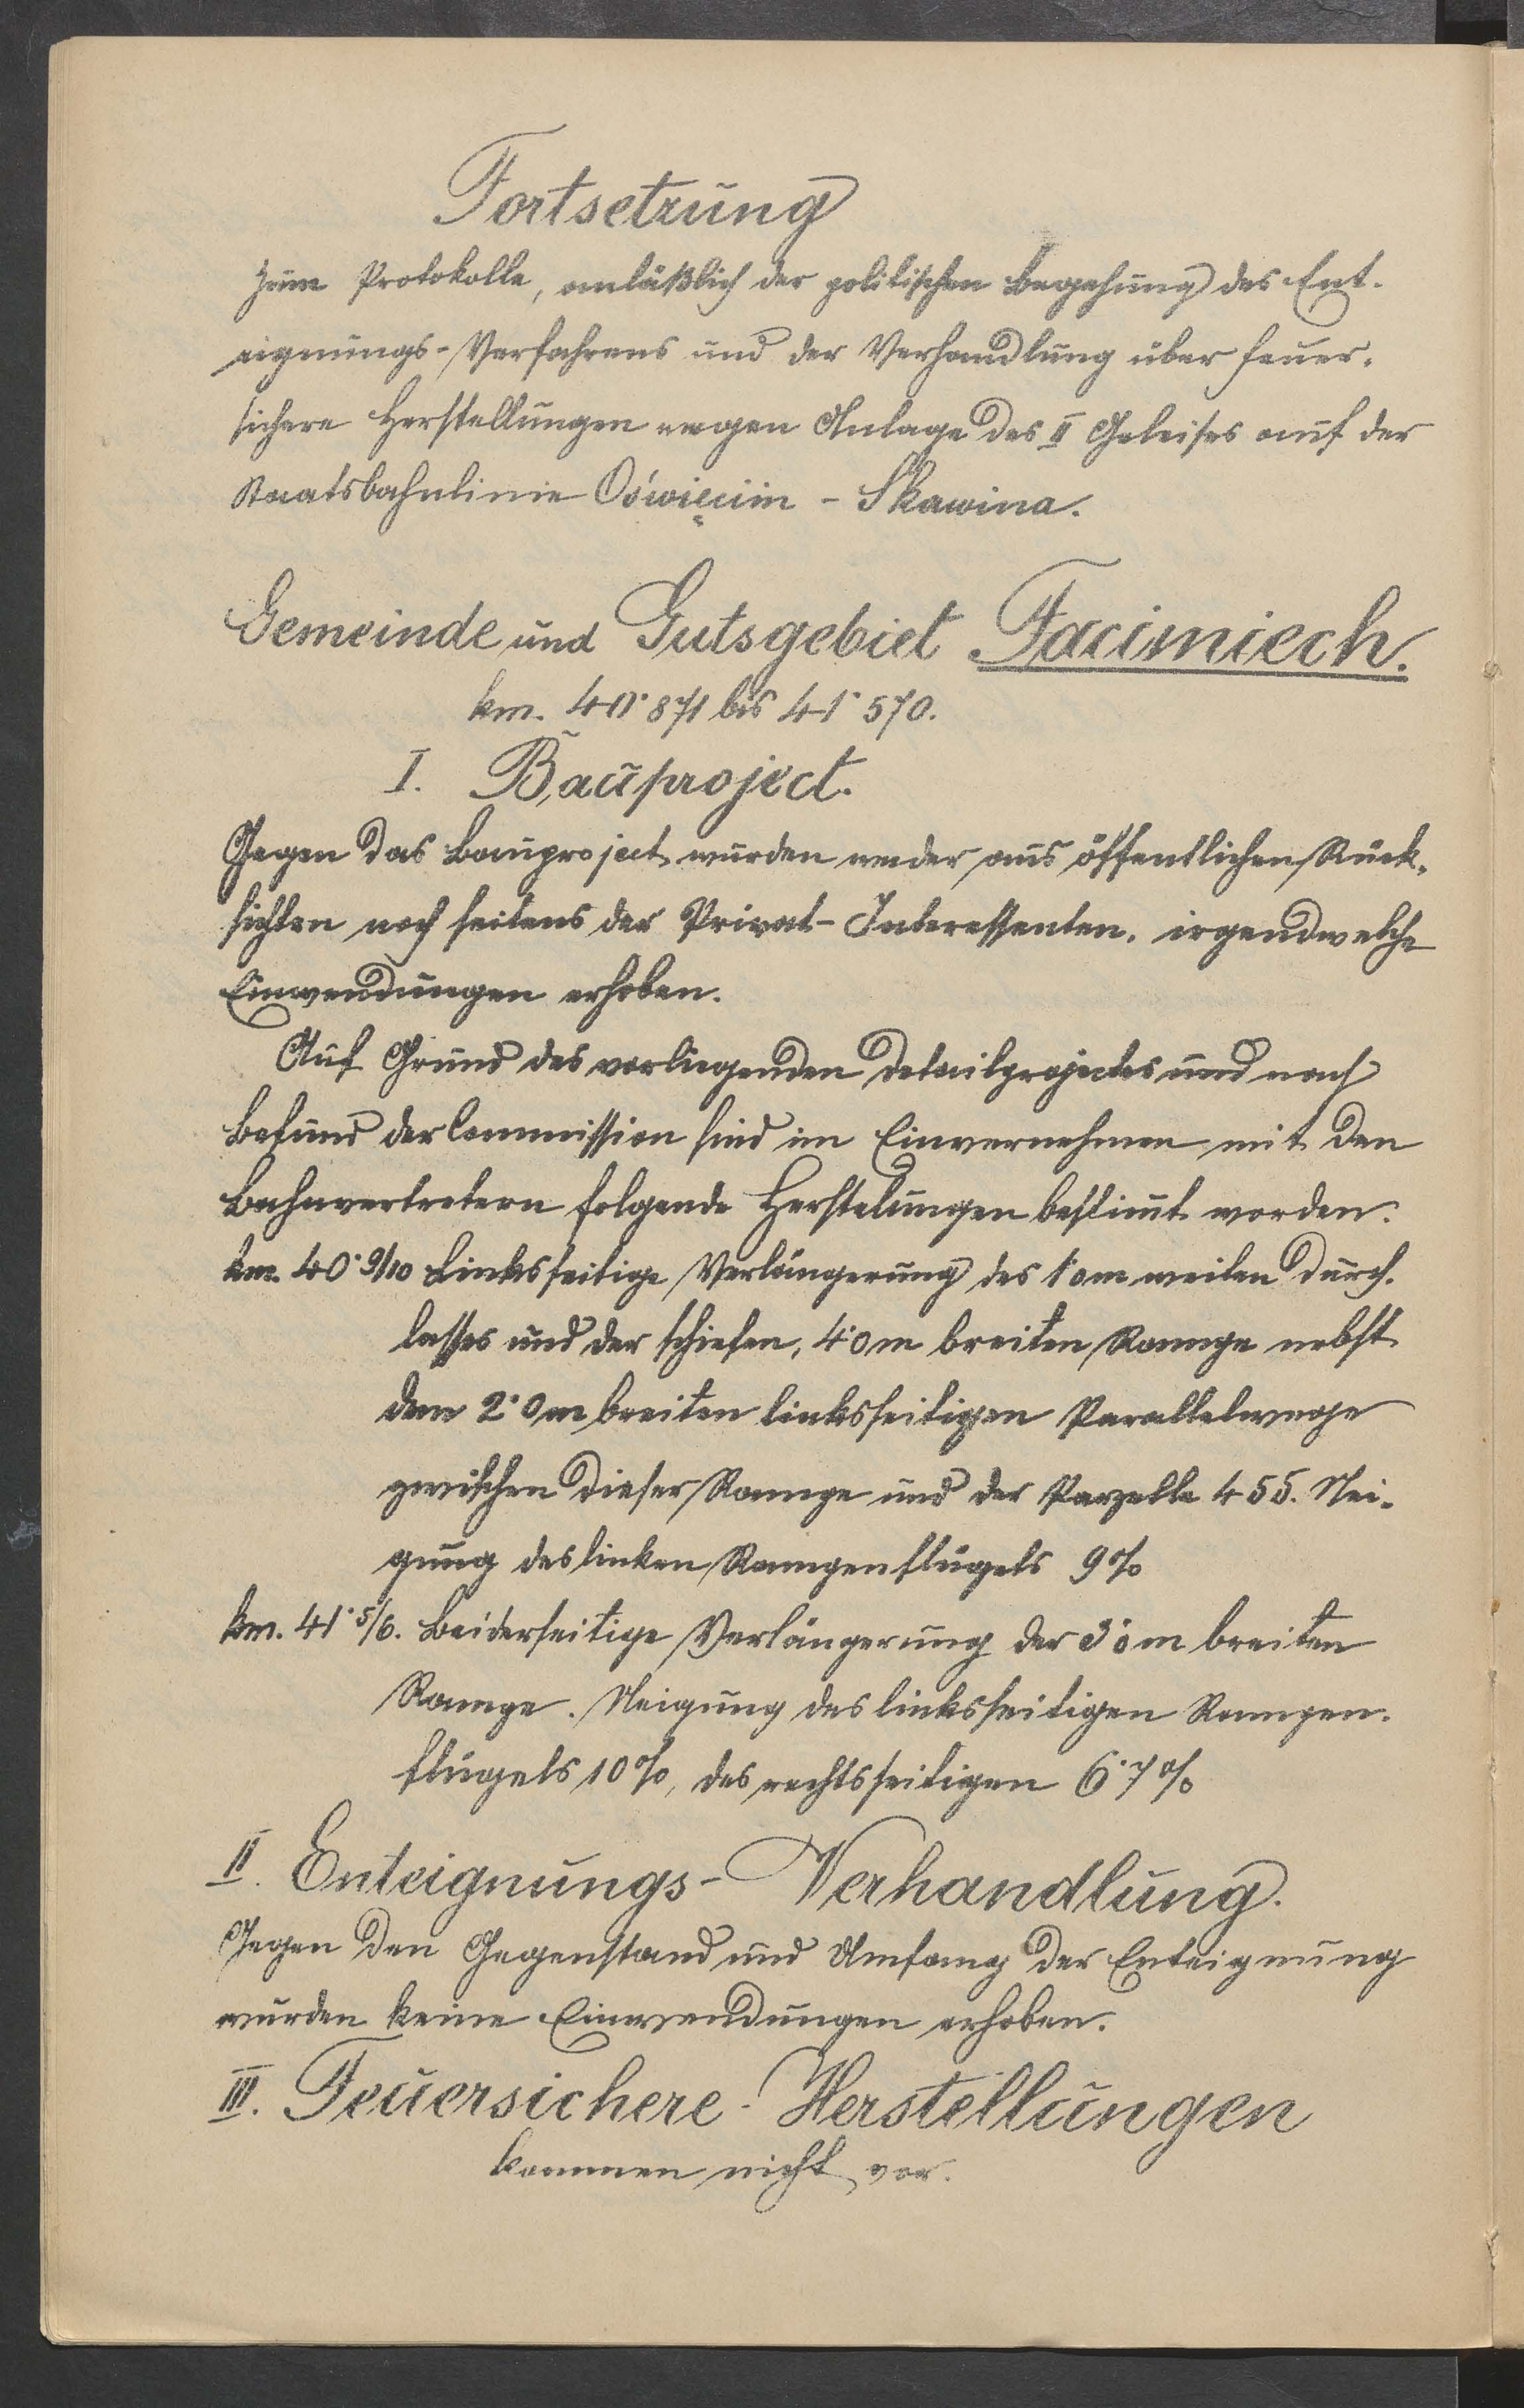 Fortsetzung
zum Protokolle, anläßlich der politischen Begehung des Ent-
eignungs-Verfahrens und der Verhandlung über feuer-
sichere Herstellungen wegen Anlage des II Geleises auf der
Staatsbahnlinie Oświęcim - Skawina.
Gemeinde und Gutsgebiet Facimiech.
km. 40·871 bis 41·570.
I. Bauproject.
Gegen das Bauproject wurden weder aus öffentlichen Rück-
sichten noch seitens der Privat-Interessenten, irgendwelche
Einwendungen erhoben.
Auf Grund des vorliegenden Detailprojectes und nach
Befund der Commission sind im Einvernehmen mit den
Bahnvertretern folgende Herstelungen bestimt worden:
km. 40·9/10 Linksseitige Verlängerung des 1·0m weiten Durch-
lasses und der schiefen, 4·0m breiten Rampe nebst
dem 2·0m breiten linksseitigen Parallelwege
zwischen dieser Rampe und der Parzelle 455. Nei-
gung des linken Rampenflügels 9%
km. 41·5/6. Beiderseitige Verlängerung der 3·0m breiten
Rampe. Neigung des linksseitigen Rampen-
flügels 10%, des rechtsseitigen 6·7%
II. Enteignungs-Verhandlung.
Gegen den Gegenstand und Umfang der Enteignung
wurden keine Einwendungen erhoben.
III. Feuersichere-Herstellungen
kommen nicht vor.